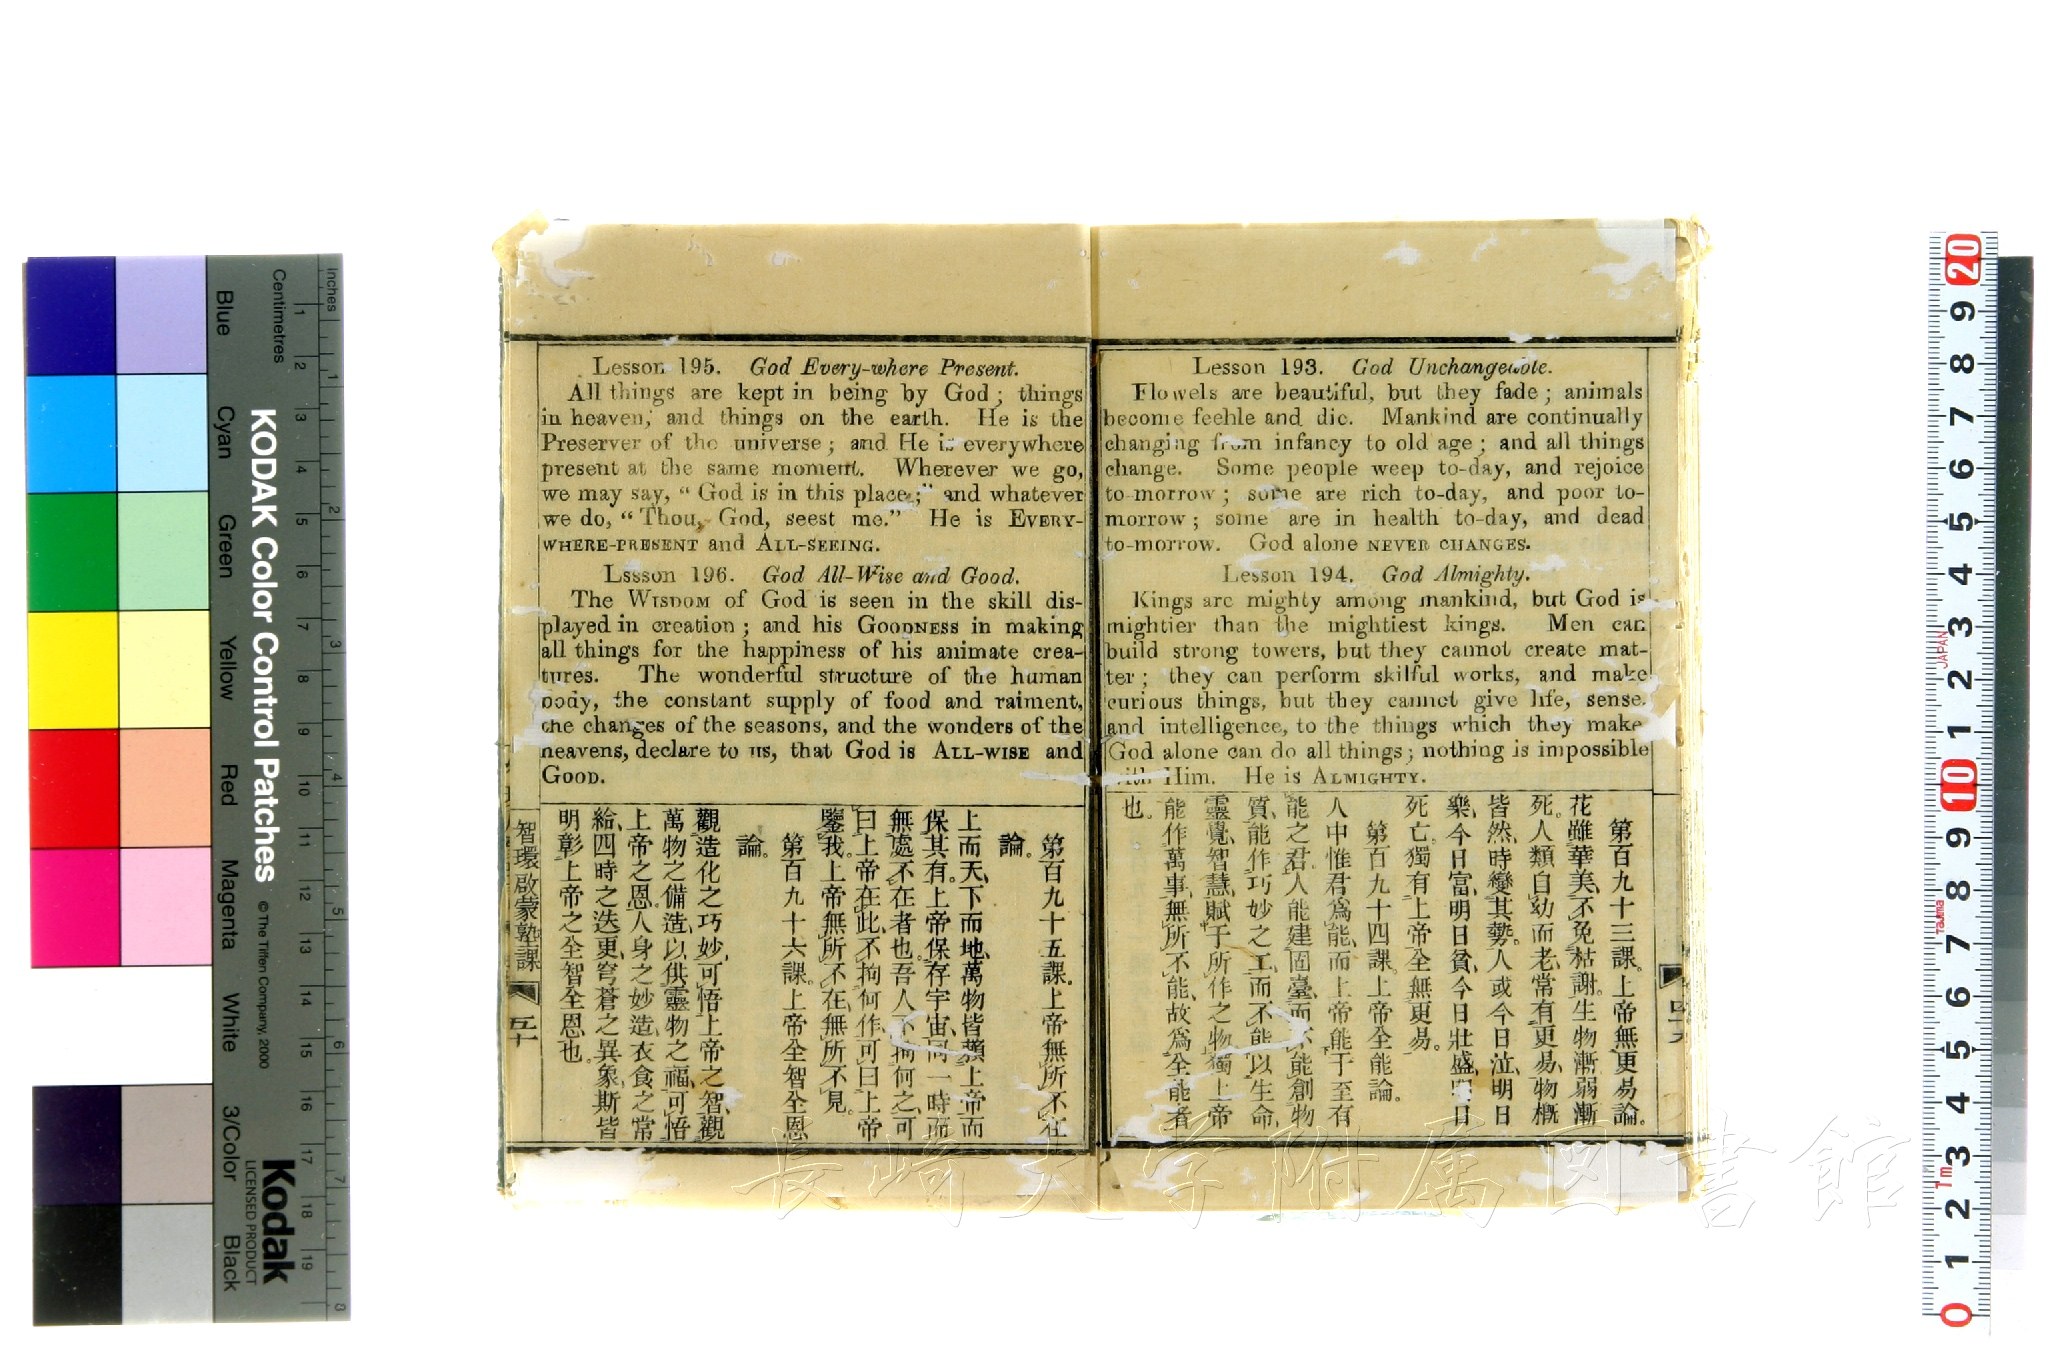 Lesson 193. God Unchangeable.
Flowels are beautiful, but they fade; animals
become feehle and die. Mankind are continually
changing from infancy to old age; and all things
change. Some people weep to-day, and rejoice
to-morrow; some are rich to-day, and poor to-
morrow; some are in health to-day, and dead
to-morrow. God alone NEVER CHANGES.
Lesson 194. God Almighty.
Kings are mighty among mankind, but God is
mightier than the mightiest kings. Men can
build strong towers, but they cannot create mat-
ter; they can perform skilful works, and make
curious things, but they cannot give life, sense,
and intelligence, to the things which they make
God alone can do all things; nothing is impossible
with Him. He is ALMIGHTY.
第百九十三課。上帝無更易論。
花雖華美、不免枯謝。生物漸弱漸
死。人類自幼而老、常有更易、物概
皆然、時變其勢。人或今日泣、明日
樂、今日富、明日貧、今日壯盛、明日
死亡。獨有上帝全無更易。
第百九十四課。上帝全能論。
人中惟君為能、而上帝能于至有
能之君。人能建固臺、而不能創物
質、能作巧妙之工、而不能以生命、
靈覺、智慧、賦于所作之物、獨上帝
能作萬事、無所不能、故為全能者
也。
四十九
Lesson 195. God Every-where Present.
All things are kept in being by God; things
in heaven, and things on the earth. He is the
Preserver of the universe; and He is everywhere
present at the same moment. Wherever we go,
we may say, “God is in this place;” and whatever
we do, “Thou, God, seest me.” He is EVERY-
WHERE-PRESENT and ALL-SEEING.
Lsssson 196. God All-Wise and Good.
The WISDOM of God is seen in the skill dis-
played in creation; and his GOODNESS in making
all things for the happiness of his animate crea-
tures. The wonderful structure of the human
body, the constant supply of food and raiment,
the changes of the seasons, and the wonders of the
heavens, declare to us, that God is ALL-WISE and
GOOD.
第百九十五課。上帝無所不在
論。
上而天、下而地、萬物皆賴上帝而
保其有。上帝保存宇宙、同一時而
無處不在者也。吾人不拘何之、可
曰上帝在此、不拘何作、可曰上帝
鑒我。上帝無所不在、無所不見。
第百九十六課。上帝全智全恩
論。
觀造化之巧妙、可悟上帝之智、觀
萬物之備造、以供靈物之福、可悟
上帝之恩。人身之妙造、衣食之常
給、四時之迭更、穹蒼之異象、斯皆
明彰上帝之全智全恩也。
智環啟蒙塾課
五十
長崎大学附属図書館
KODAK Color Control Patches
© The Tiffen Company, 2000
Kodak
LICENSED PRODUCT
Inches
1 2 3 4 5 6 7 8
Centimetres
1 2 3 4 5 6 7 8 9 10 11 12 13 14 15 16 17 18 19
Blue Cyan Green Yellow Red Magenta White 3/Color Black
20 9 8 7 6 5 4 3 2 1 10 9 8 7 6 5 4 3 2 1 0
JAPAN
Tajima
1m